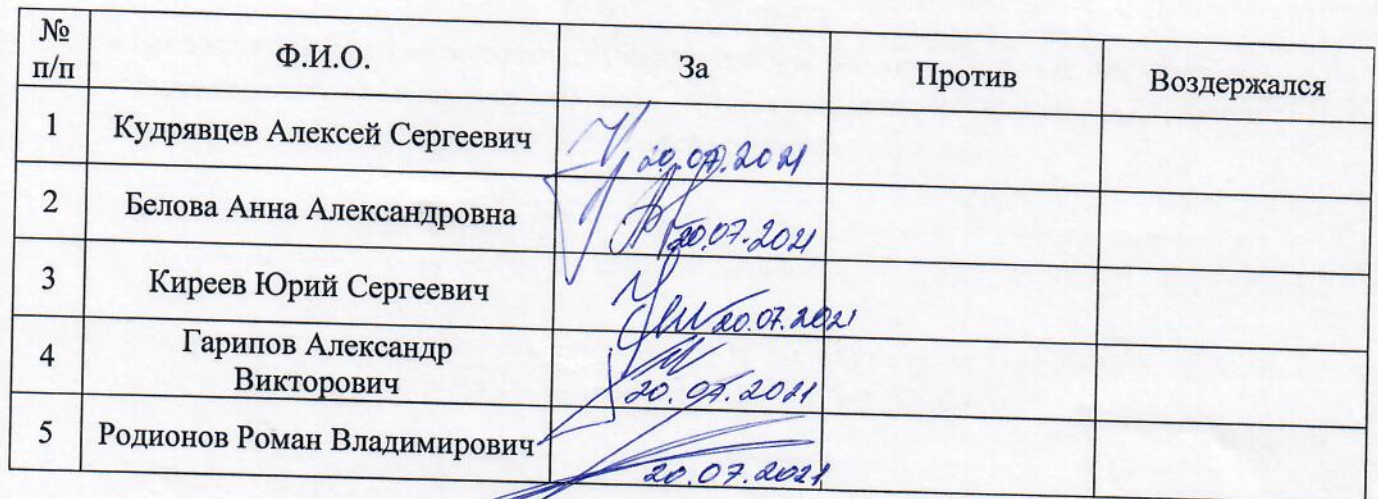 № п/п Ф.И.О. За Против Воздержался
1 Кудрявцев Алексей Сергеевич 20.07.2021
2 Белова Анна Александровна 20.07.2021
3 Киреев Юрий Сергеевич 20.07.2021
4 Гарипов Александр
Викторович 20.07.2021
5 Родионов Роман Владимирович 20.07.2021